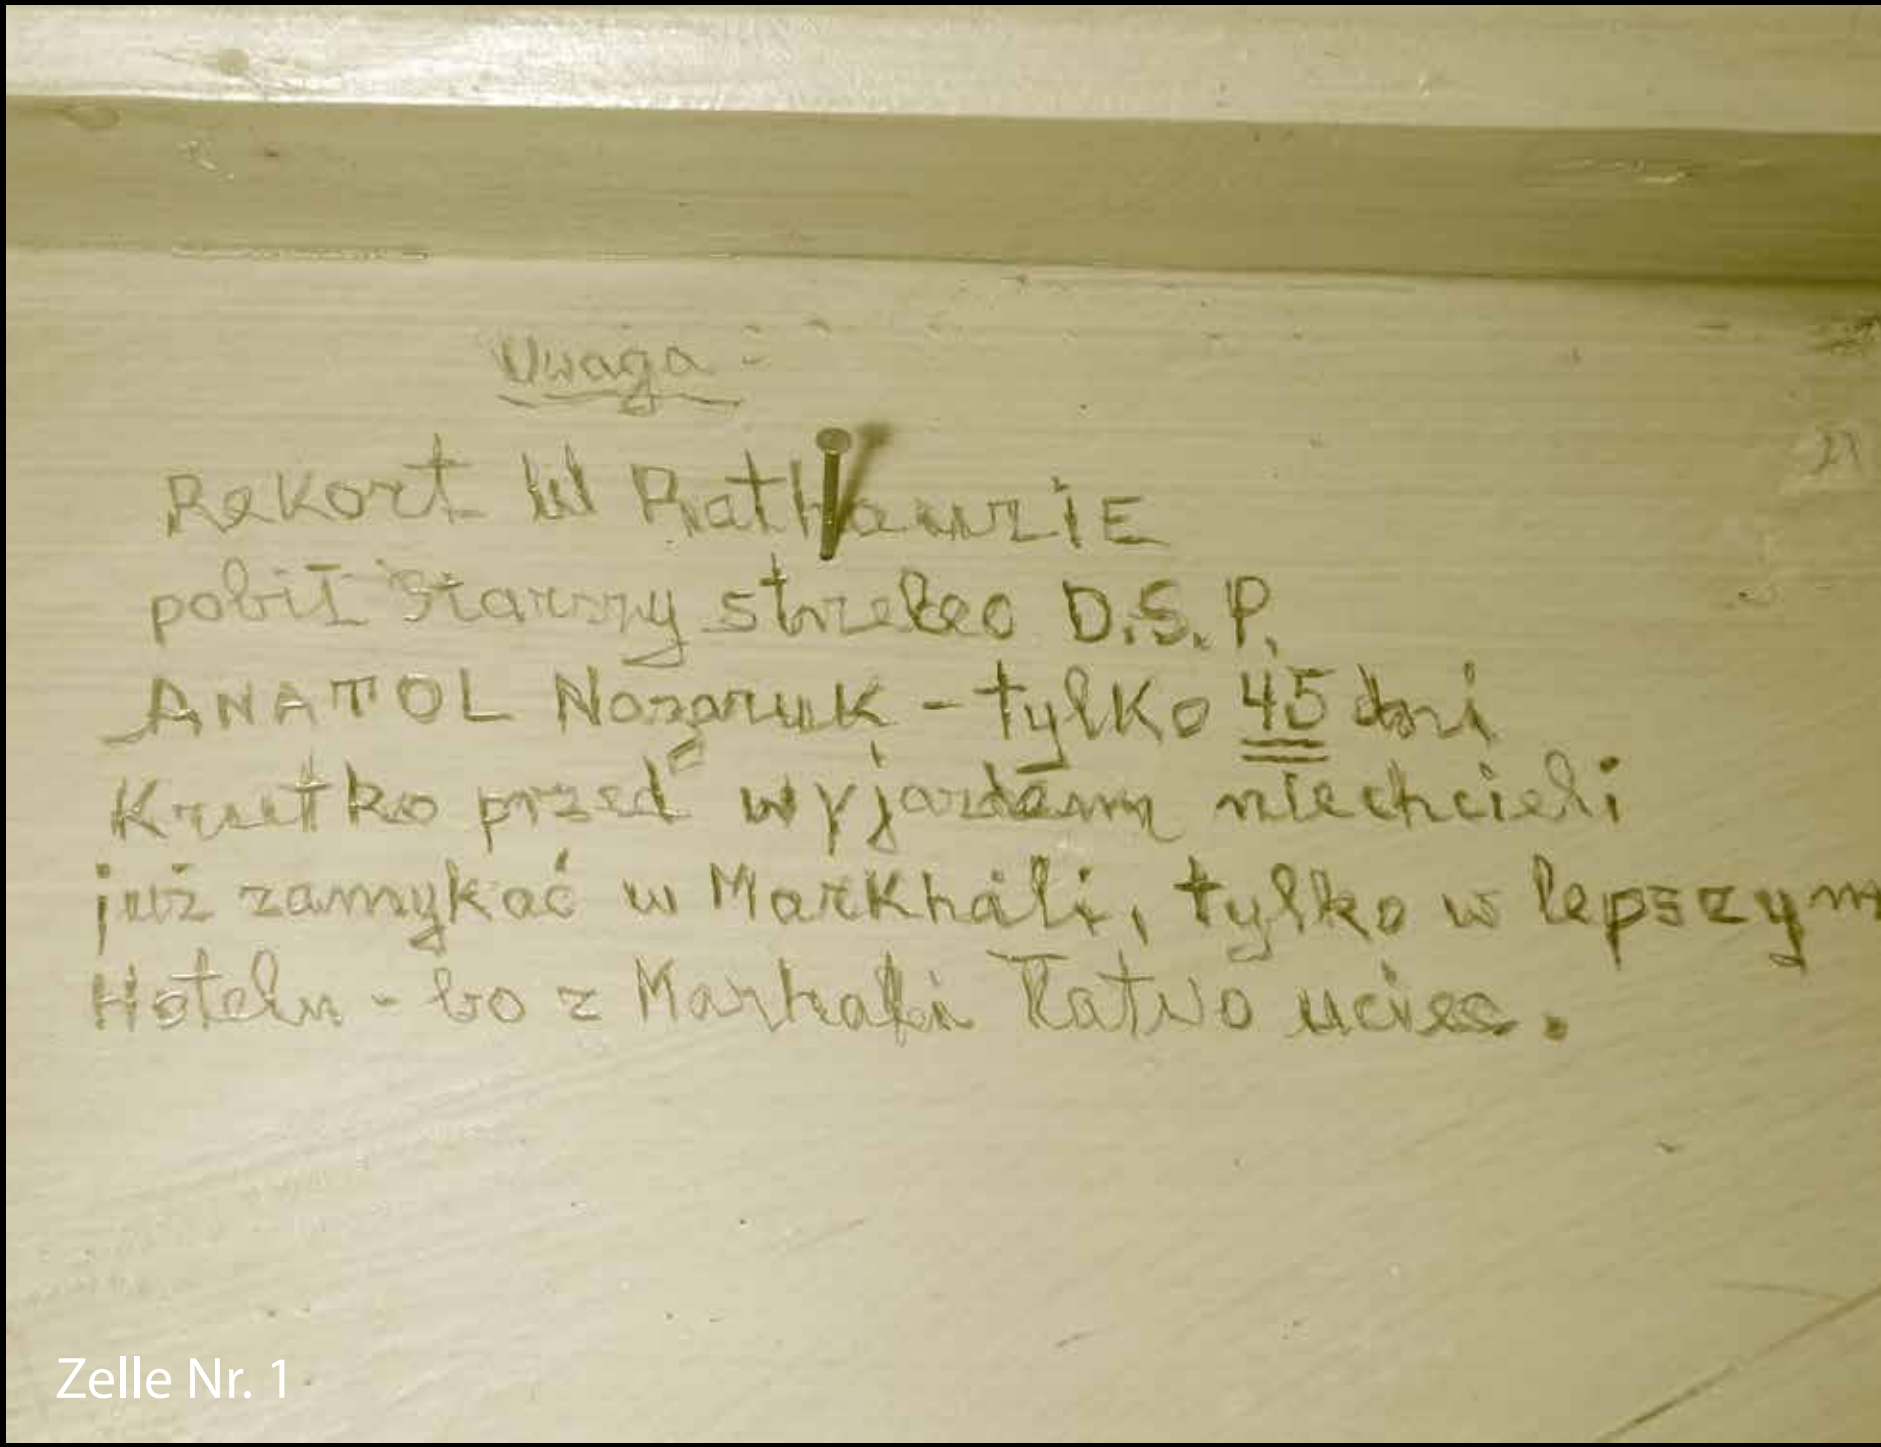 Uwaga:
Rekort W RathawziE
pobił Starszy strzelec D.S.P.
ANATOL Nazaruk - tylko 45 dni
Krutko przed wyjazdem niechcieli
już zamykać w Markhali, tylko w lepszym
Hotelu - bo z Markhali łatwo uciec.
Zelle Nr. 1